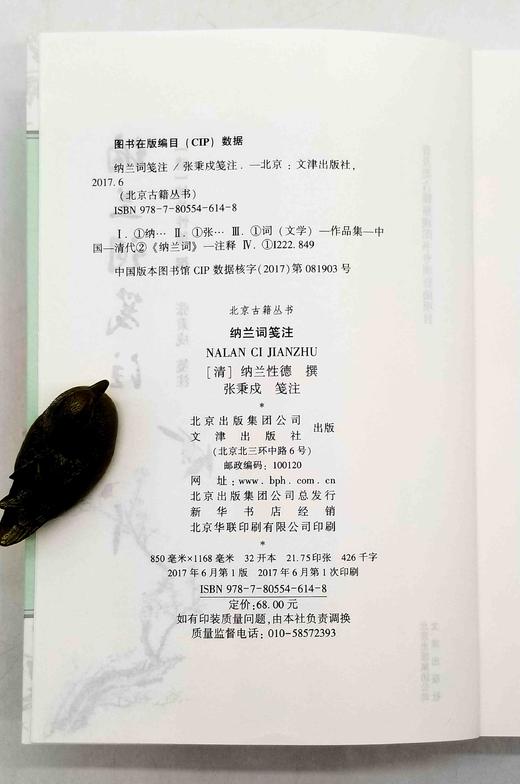 图书在版编目（CIP）数据
纳兰词笺注 / 张秉戍笺注．—北京：文津出版社，
2017.6
（北京古籍丛书）
ISBN 978-7-80554-614-8
Ⅰ．①纳… Ⅱ．①张… Ⅲ．①词（文学）—作品集—中
国—清代②《纳兰词》—注释 Ⅳ．①I222.849
中国版本图书馆 CIP 数据核字（2017）第 081903 号
北京古籍丛书
纳兰词笺注
NALAN CI JIANZHU
［清］纳兰性德 撰
张秉戍 笺注
*
北京出版集团公司
文津出版社 出版
（北京北三环中路6号）
邮政编码：100120
网 址：www．bph．com．cn
北京出版集团公司总发行
新华书店经销
北京华联印刷有限公司印刷
*
850毫米×1168毫米 32开本 21.75印张 426千字
2017年6月第1版 2017年6月第1次印刷
ISBN 978-7-80554-614-8
定价：68.00元
如有印装质量问题，由本社负责调换
质量监督电话：010-58572393